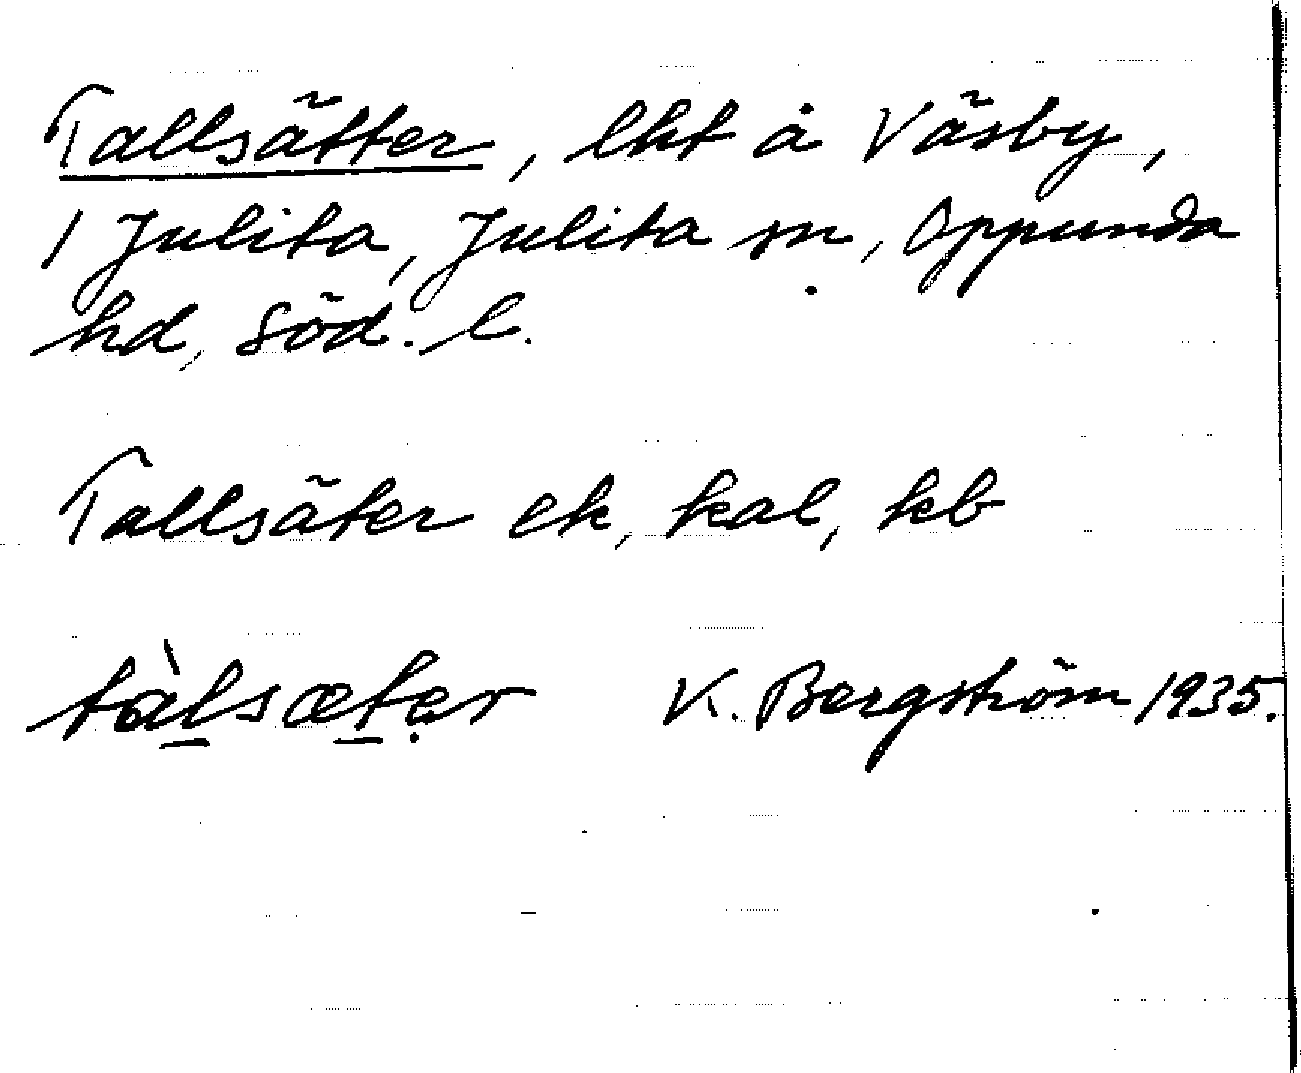 Tallsätter, lht å Väsby,
1 Julita, Julita sn, Oppunda
hd, Söd. l.
Tallsäter ek, kal, kb
tàl̲sæt̲ẹr K. Bergström 1935.